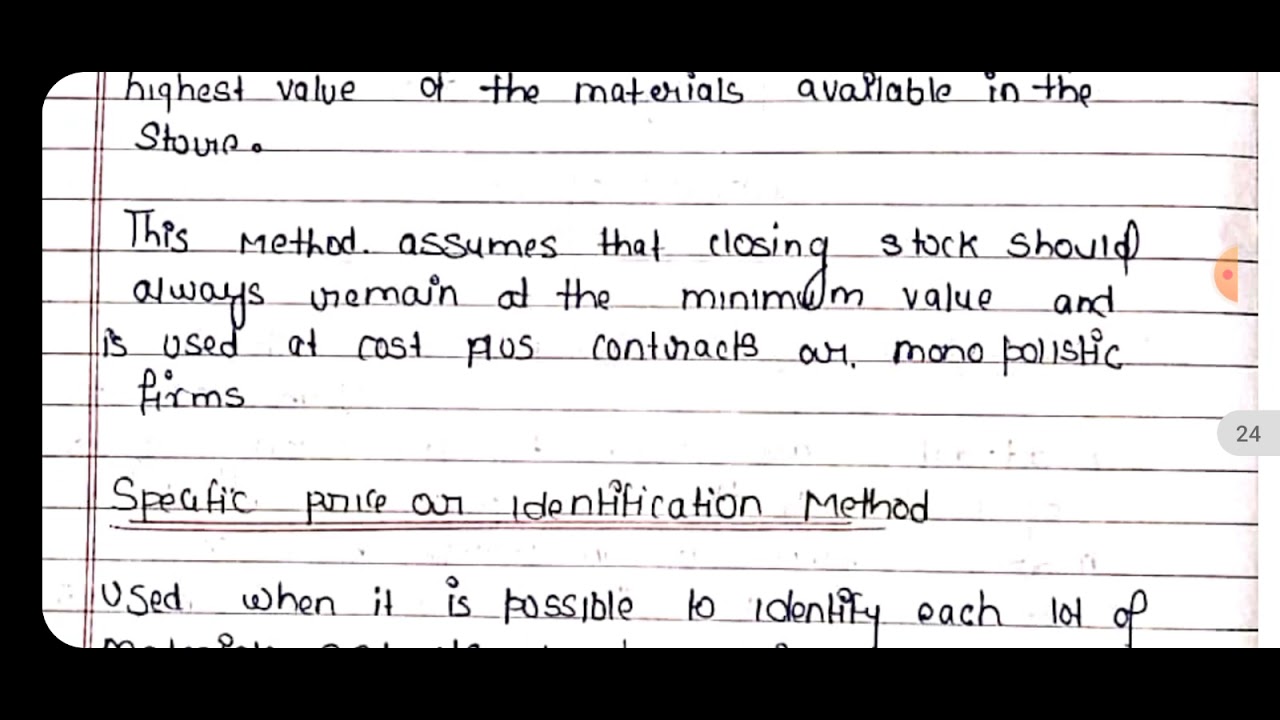 highest value of the materials available in the
Store.
This Method. assumes that closing stock should
always remain at the minimum value and
is used at cost plus contracts or. monopolistic
firms
24
Specific price or Identification Method
Used when it is possible to identify each lot of